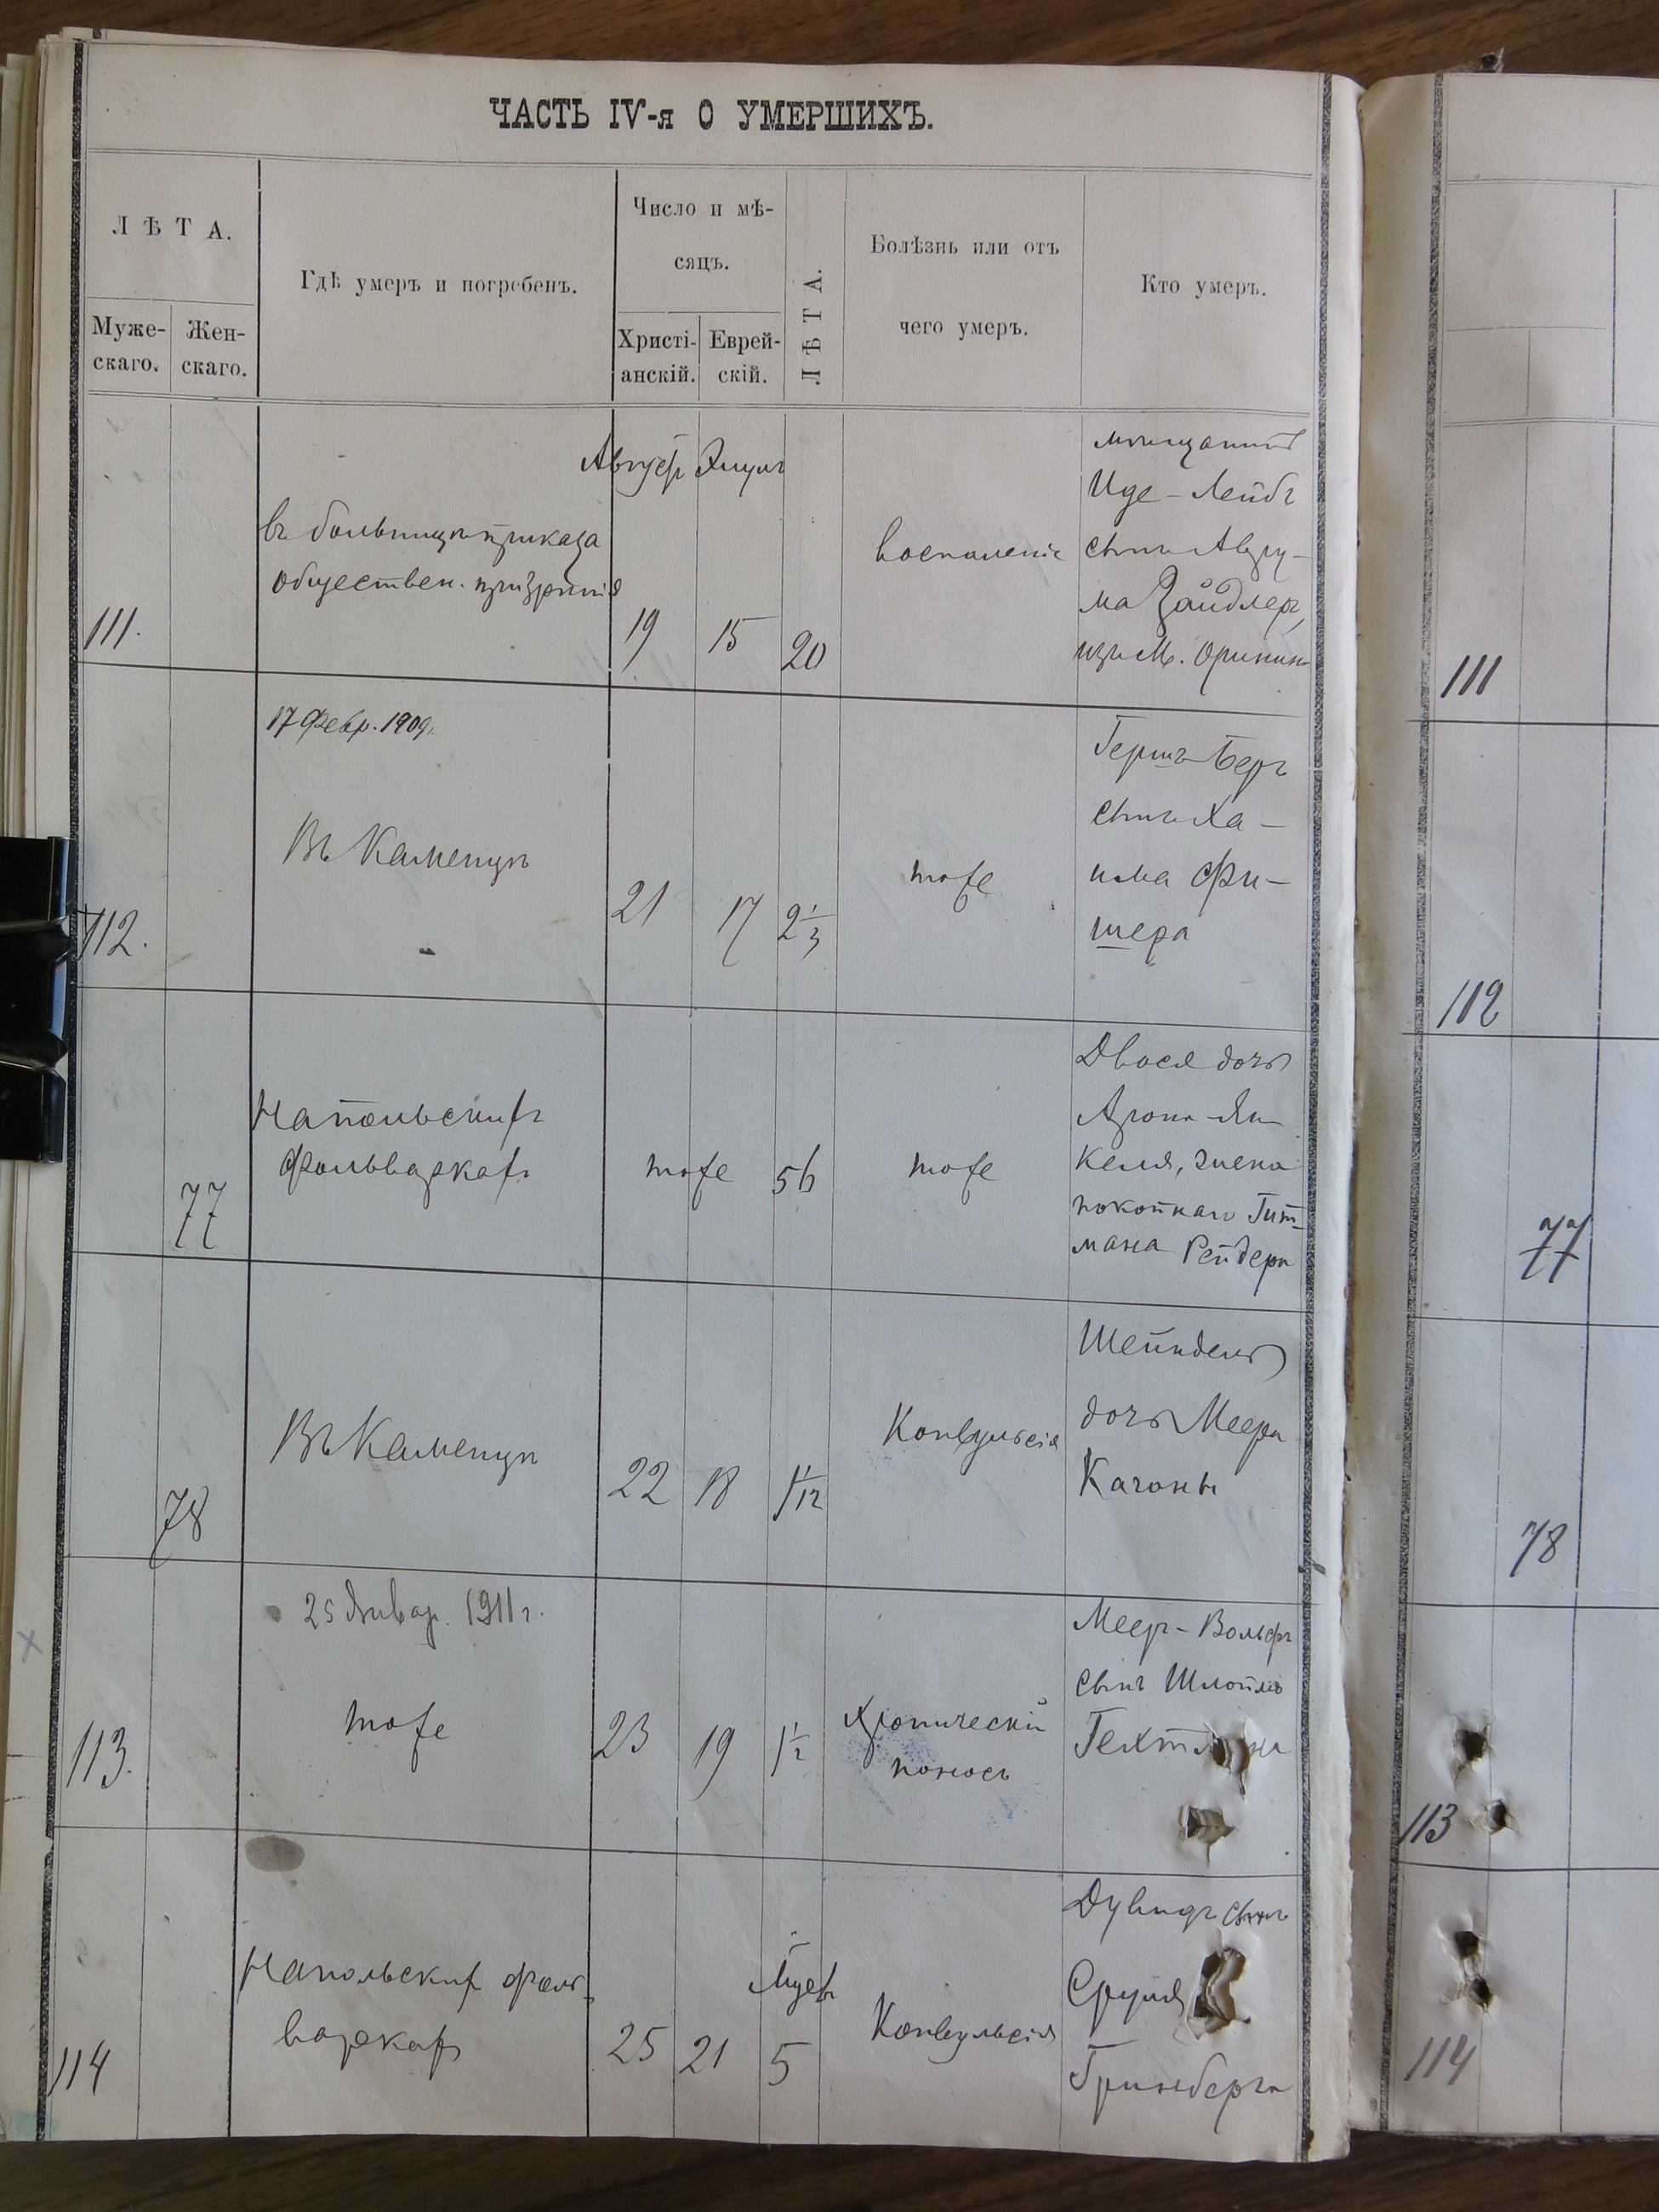 ЧАСТЬ IV-я О УМЕРШИХЪ.
ЛѢТА.
Муже-
скаго.
Жен-
скаго.
Гдѣ умеръ и погребенъ.
Число и мѣ-
сяцъ.
Христі-
анскій.
Еврей-
скій.
ЛѢТА.
Болѣзнь или отъ
чего умеръ.
Кто умеръ.
111.
въ больницѣ приказа
обществен. призрѣнія
Август Элулъ
19
15
20
воспаленіе
мѣщанинъ
Иде-Лейбъ
сынъ Авру-
ма Зайдлеръ,
изъ М. Оринин
111
17 Февр. 1909г.
112.
Въ Каменцѣ
21
17
2 1/3
тоже
Гершъ-Беръ
сынъ Ха-
има Фи-
шера
112
77
На польскихъ
фольваркахъ
тоже
56
тоже
Двося дочь
Арона-Ян-
келя, жена
покойнаго Гит-
мана Рейдера
77
78
Въ Каменцѣ
22
18
1 1/12
Конвульсія
Шейндель
дочь Меера
Кагоны
78
25 Январ. 1911г.
113.
тоже
23
19
1 1/2
Хроническій
поносъ
Мееръ-Вольфъ
сынъ Шлоймы
113
114
На польских фоль-
варках
25
21
5
Конвульсія
Дувидъ сынъ
Сруля
Гринберга
114